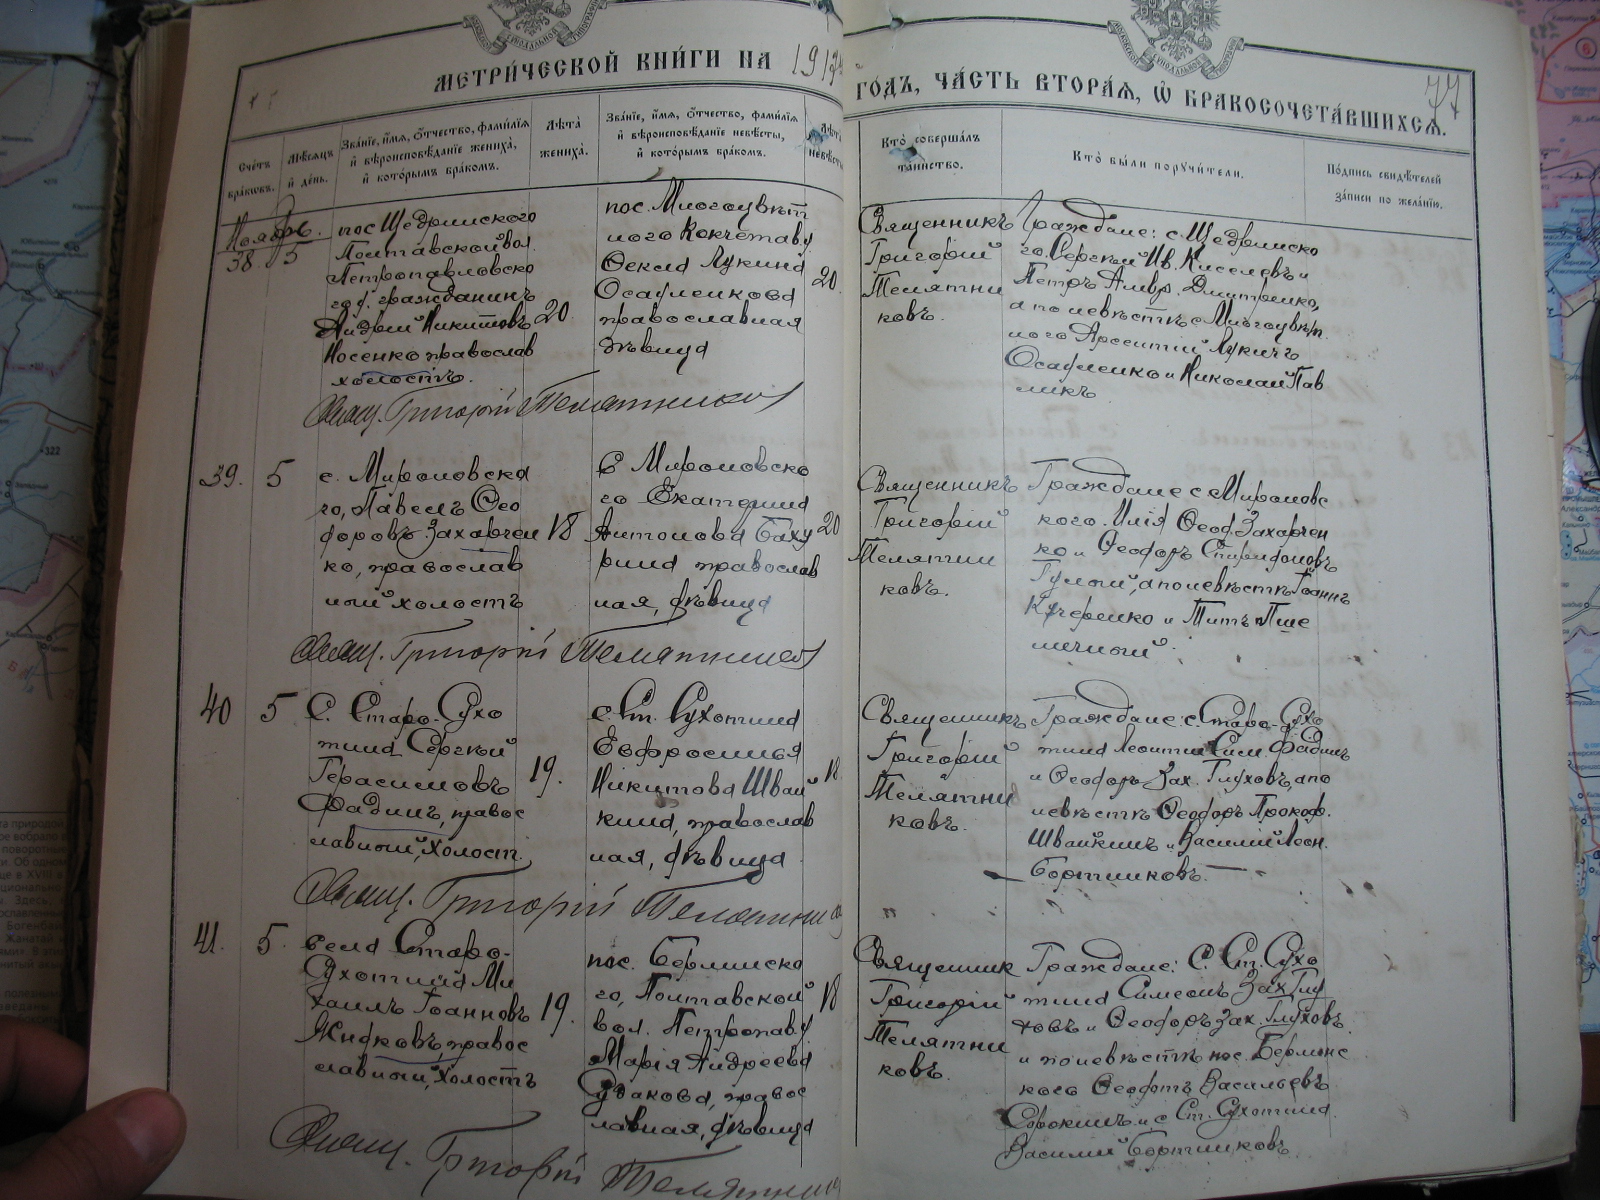 МЕТРИ́ЧЕСКОЙ КНИ́ГИ НА 1917 ГОДЪ, ЧА́СТЬ ВТОРА́Я, Ѽ БРАКОСОЧЕТА́ВШИХСѦ.
77
Сче́тъ бра́ковъ.
Мѣ́сяцъ и день.
Зва́нїе, и́мя, ѻ́тчество, фами́лїя и вѣроисповѣ́данїе жениха̀, и кото́рымъ бра́комъ.
Лѣ́та жениха̀.
Зва́нїе, и́мя, ѻ́тчество, фами́лїя и вѣроисповѣ́данїе невѣ́сты, и кото́рымъ бра́комъ.
Лѣ́та невѣ́сты
Кто̀ соверша́лъ та́инство.
Кто̀ бы́ли поручи́тели.
По́дпись свидѣ́телей за́писи по жела́нїю.
Ноябрь.
38. 5
пос Щедринского
Полтавской вол.
Петропавловско
го у. гражданинъ
Андрей Никитовъ
Носенко православ
холостъ.
20
пос. Многоцвѣт
ного Кокчетав. у
Ѳекла Лукина
Осафленкова
православная
дѣвица
20
Священникъ
Григорій
Телятни
ковъ.
Граждане: с. Щедринско
го. Сергѣй Ив. Киселевъ и
Петръ Дмитренко,
а по невѣстѣ с Многоцвѣт
ного Арсентій Лукичъ
Осафленко и Николай Пав
ликъ
Свящ. Григорій Телятниковъ
39. 5
с. Мироновска
го, Павелъ Ѳео
форовъ Захарчен
ко, православ
ный холостъ
18
с Мироновско
го Екатерина
Антонова Баху
рина православ
ная, дѣвица
20
Священникъ
Григорій
Телятни
ковъ.
Граждане с Мироновс
кого. Илія Ѳеод. Захарчен
ко и Ѳеодоръ Спиридоновъ
а по невѣстѣ Іоаннъ
Кучеренко и Митъ Пше
ничный
Свящ. Григорій Телятниковъ
40 5
С. Старо-Сухо
тина Сергѣй
Герасимовъ
Фадинъ, правос
лавный, холост.
19.
с. Ст. Сухотина
Евфросинья
Никитова Швай
кина, православ
ная, дѣвица
18
Священникъ
Григорій
Телятни
ковъ.
Граждане: с. Старо-Сухо
тина Леонтій Сим. Фадинъ
и Ѳеодоръ Зах. Глуховъ, а по
невѣстѣ Ѳеодоръ Прокоф.
Швайкинъ и Василий Леон.
Бортниковъ.
Свящ. Григорій Телятников
41. 5.
села Старо-
Сухотина Ми
хаилъ Іоанновъ
Жидковъ, правос
лавный, холостъ
19.
пос. Берлинско
го, Полтавской
вол. Петропав. у
Марія Андреева
Судакова, правос
лавная, дѣвица
18
Священник
Григорій
Телятни
ковъ.
Граждане: С. Ст. Сухо
тина Симеонъ Зах Глу
ховъ и Ѳеодоръ Зах. Глуховъ.
и по невѣстѣ пос. Берлинс
кого Ѳеодотъ Васильевъ
Сорокинъ и с Ст. Сухотина
Василий Бортниковъ
Свящ. Григорій Телятник